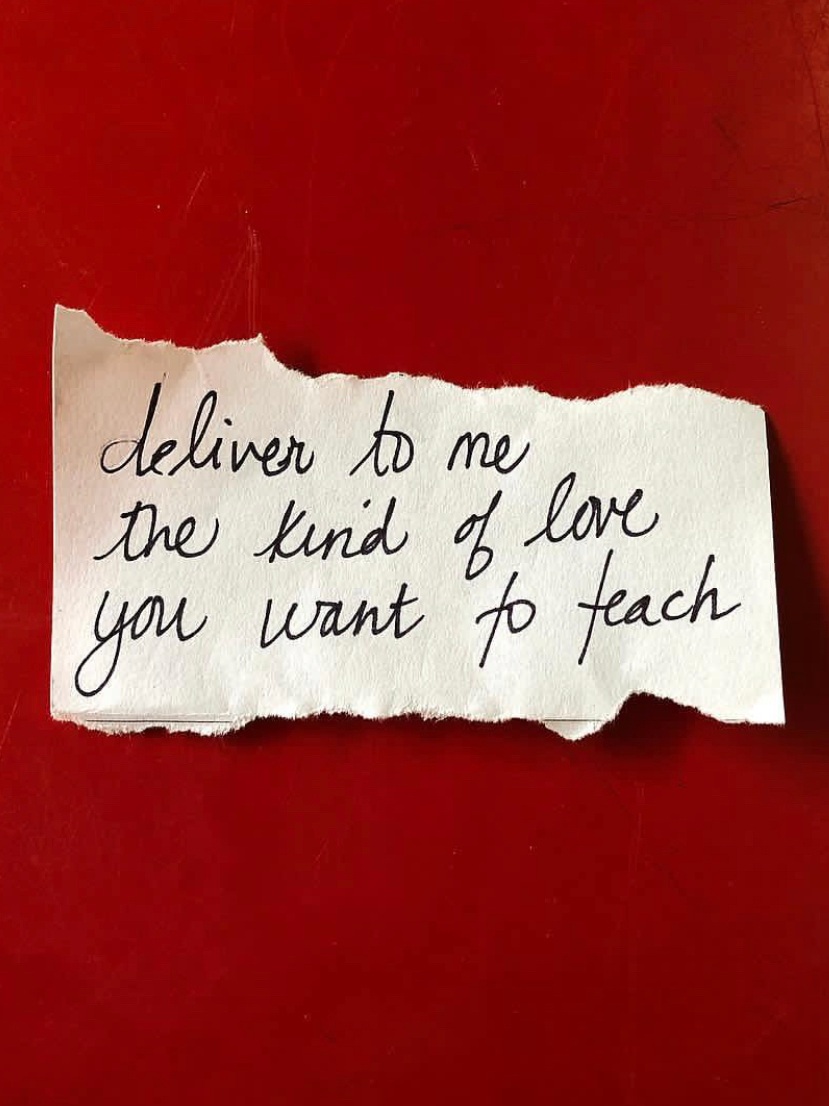 deliver to me
the kind of love
you want to teach